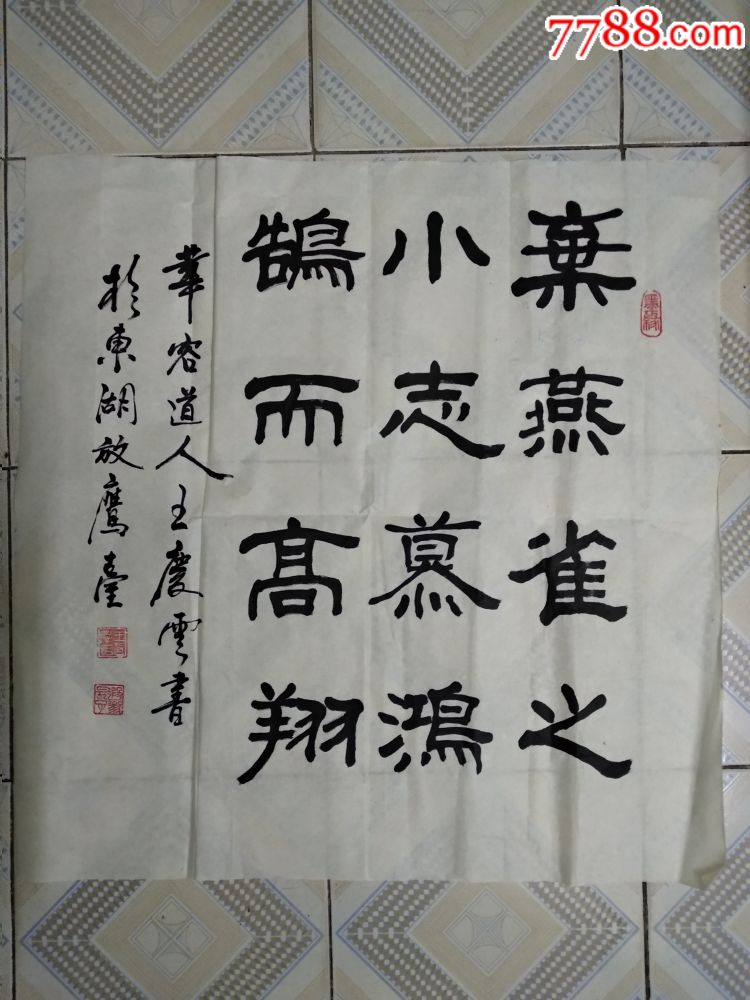 7788.com
棄燕雀之
小志慕鴻
鵠而高翔
華容道人王慶雲書
於東湖放鷹臺